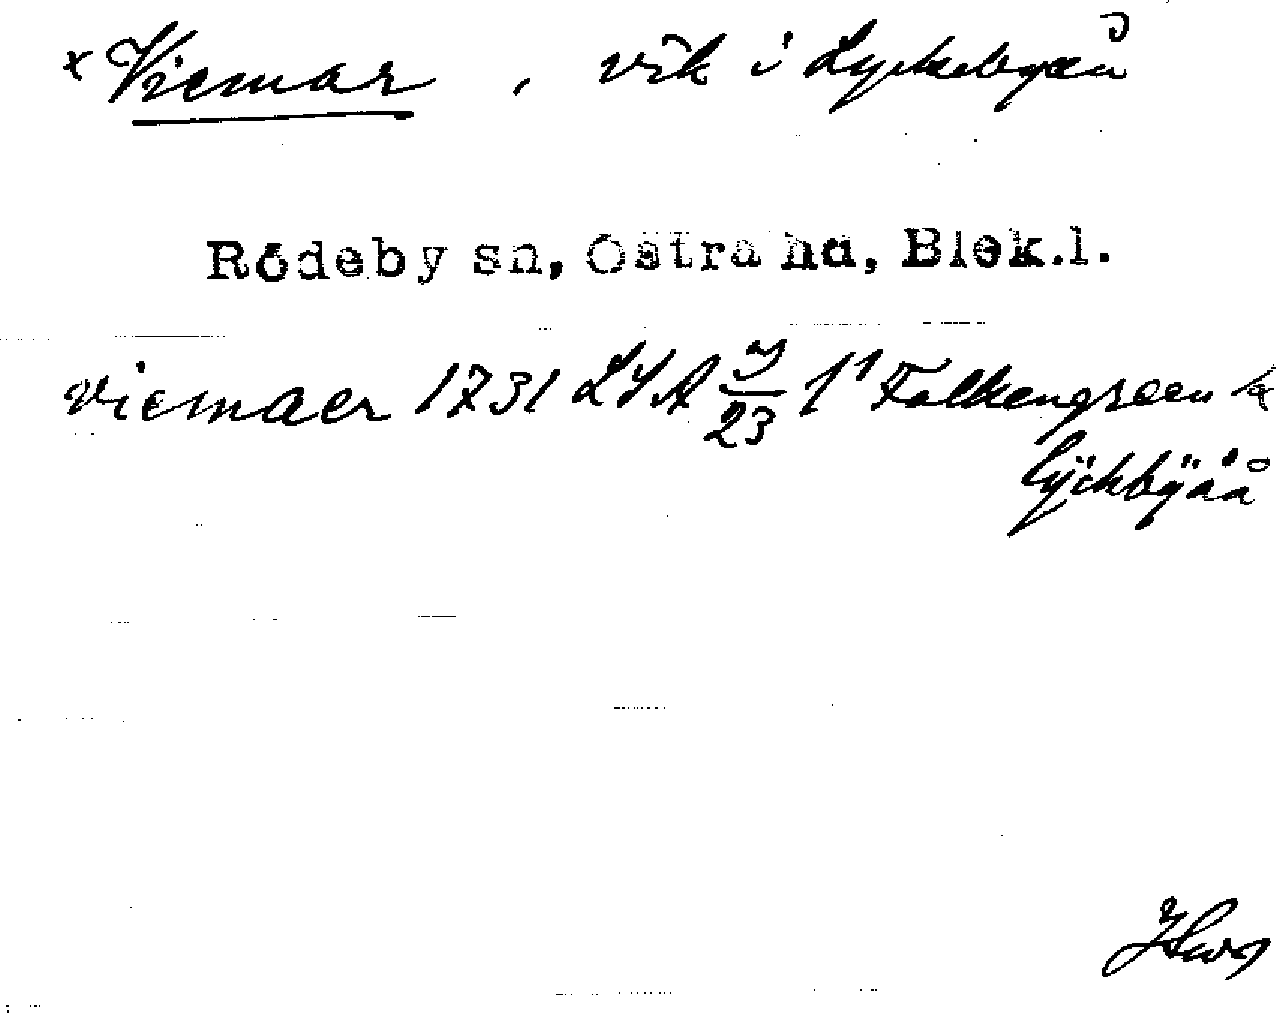 x Viemar , vik i Lyckebyån
Rödeby sn, Östra hd, Blek.l.
viemaer 1731 LSA 3/23 f1 Falkengreen k
Lÿckbÿåå